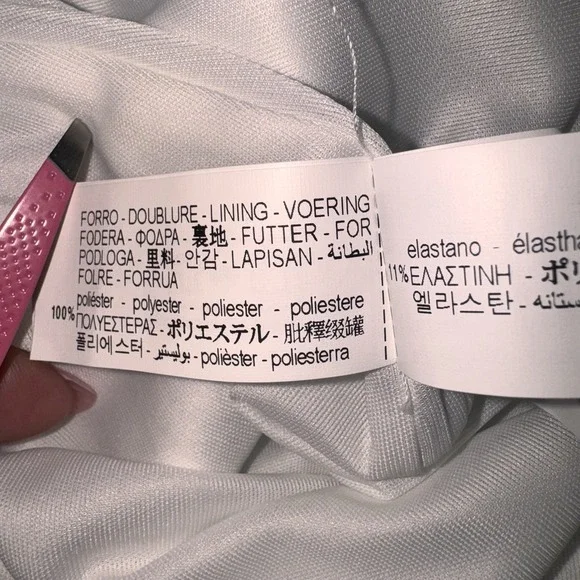 FORRO - DOUBLURE - LINING - VOERING
FODERA - ΦΟΔΡΑ - 裏地 - FUTTER - FOR
PODLOGA - 里料 - 안감 - LAPISAN - البطانة -
FOLRE - FORRUA
poliéster - polyester - poliester - poliestere
100% ΠΟΛΥΕΣΤΕΡΑΣ - ポリエステル -
폴리에스터 - بوليستر - polièster - poliesterra
elastano - élastha
11% ΕΛΑΣΤΙΝΗ - ポリ
엘라스탄 -